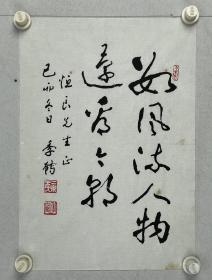 数风流人物
还看今朝
恒良先生正
己卯冬日 季鹤